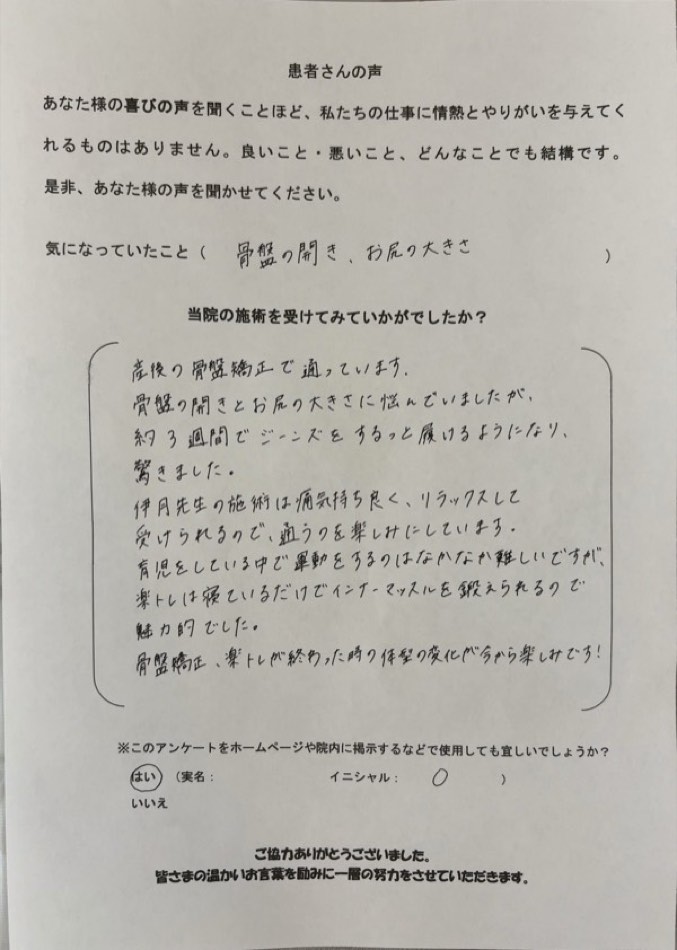 患者さんの声
あなた様の喜びの声を聞くことほど、私たちの仕事に情熱とやりがいを与えてく
れるものはありません。良いこと・悪いこと、どんなことでも結構です。
是非、あなた様の声を聞かせてください。
気になっていたこと（ 骨盤の開き、お尻の大きさ ）
当院の施術を受けてみていかがでしたか？
産後の骨盤矯正で通っています。
骨盤の開きとお尻の大きさに悩んでいましたが、
約3週間でジーンズをするっと履けるようになり、
驚きました。
伊月先生の施術は痛気持ち良く、リラックスして
受けられるので、通うのを楽しみにしています。
育児をしている中で運動をするのはなかなか難しいですが、
楽トレは寝ているだけでインナーマッスルを鍛えられるので
魅力的でした。
骨盤矯正、楽トレが終わった時の体型の変化が今から楽しみです！
※このアンケートをホームページや院内に掲示するなどで使用しても宜しいでしょうか？
はい （実名： イニシャル： O ）
いいえ
ご協力ありがとうございました。
皆さまの温かいお言葉を励みに一層の努力をさせていただきます。